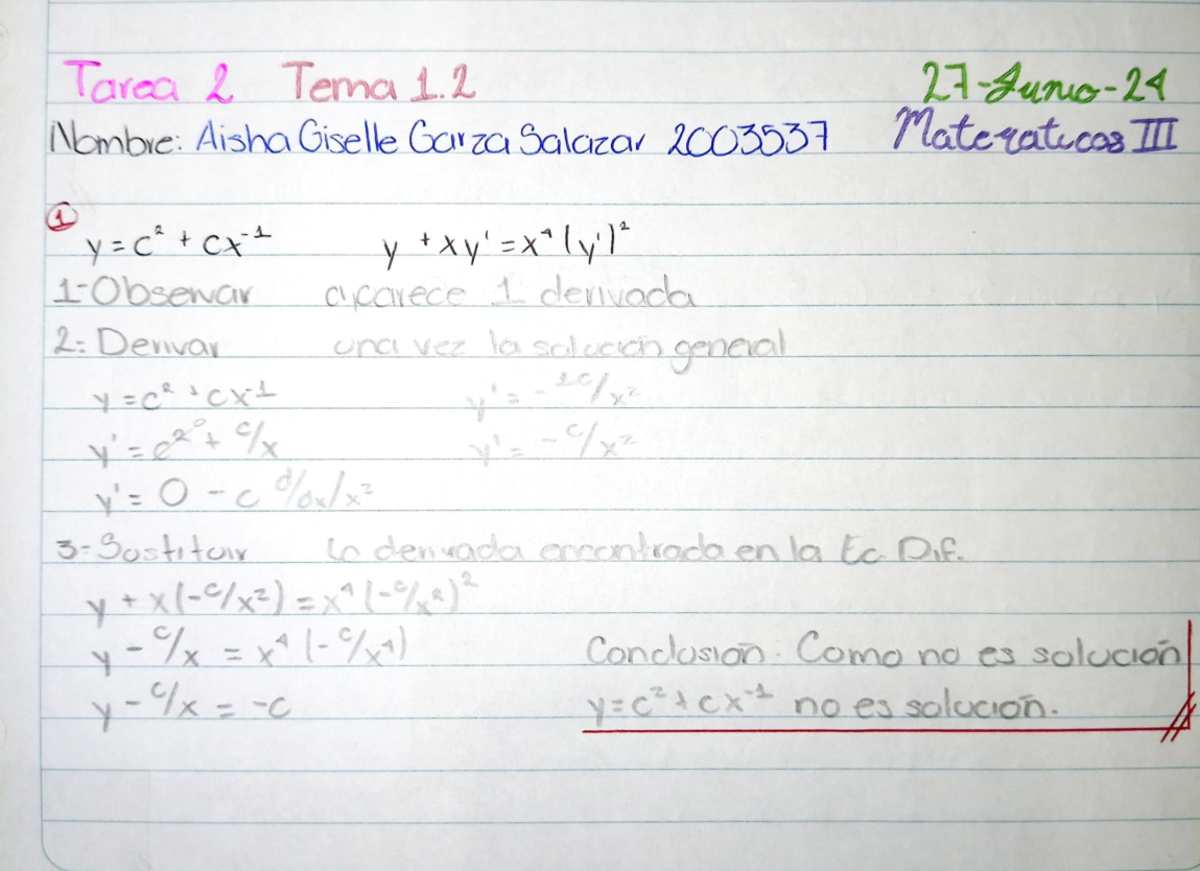 Tarea 2 Tema 1.2 27-Junio-24
Nombre: Aisha Giselle Garza Salazar 2003537 Matematicas III
① y = c² + cx⁻¹ y + xy' = x⁴ (y')²
1-Observar aparece 1 derivada
2= Derivar una vez la solución general
y = c² + cx⁻¹ y' = - 1c/x²
y' = c²⁰ + c/x y' = - c/x²
y' = 0 - c d/dx/x²
3= Sustituir la derivada encontrada en la Ec. Dif.
y + x(-c/x²) = x⁴ (-c/x²)²
y - c/x = x⁴ (-c/x⁴) Conclusión: Como no es solución
y - c/x = -c y = c² + cx⁻¹ no es solución.